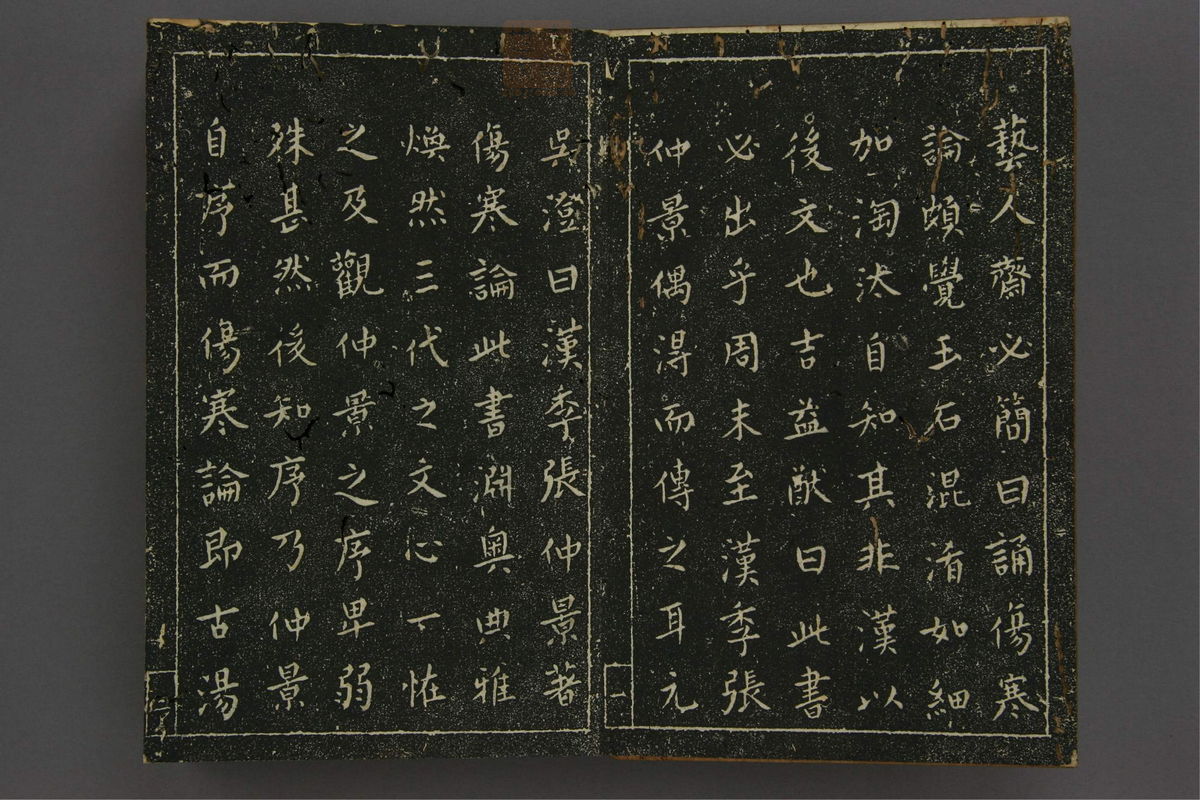 藝人齋必簡曰誦傷寒
論頗覺玉石混淆如細
加淘汰自知其非漢以
後文也吉益猷曰此書
必出乎周末至漢季張
仲景偶得而傳之耳元
吳澄曰漢季張仲景著
傷寒論此書淵奧典雅
煥然三代之文心一下恠
之及觀仲景之序卑弱
殊甚然後知序乃仲景
自序而傷寒論即古湯
一
二